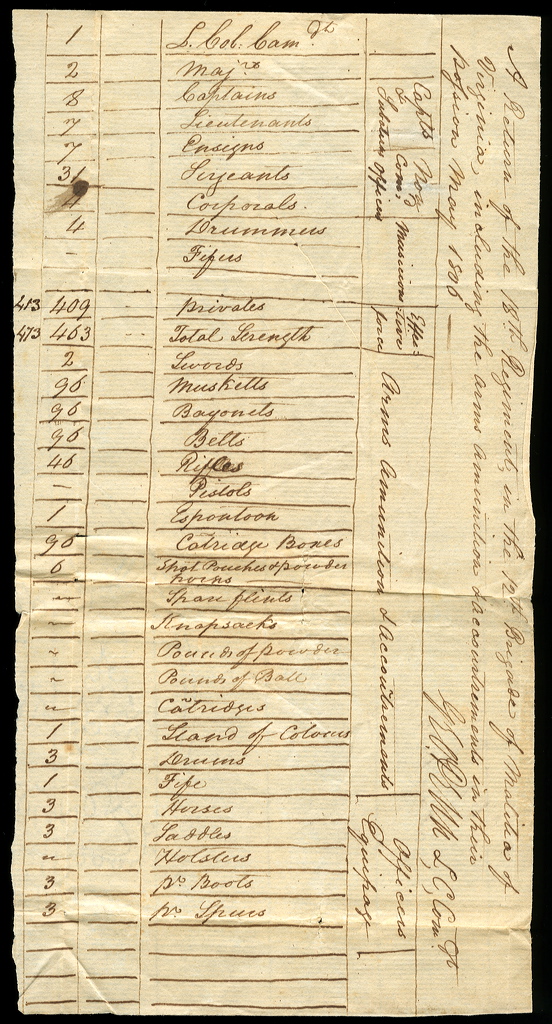 A Return of the 18th Regiment, in the 12th Brigade of Malitia of
Virginia, including the arms amunition & accoutrements in their
possession May 1806
L. C. Comdt
Capts Non
& Com,
Subaltern officers
Musicions
Effec-
tive
force
Arms Amunition & Accoutrements
Officers
Equipage
1 L. Col: Comdt
2 Majrs
8 Captains
7 Lieutenants
7 Ensigns
31 Serjeants
4 Corporals.
4 Drummers
- Fifers
413 409 Privates
473 463 Total Strength
2 Swords
96 Musketts
96 Bayonets
96 Belts
46 Rifles
- Pistols
1 Espontoon
96 Catridge Boxes
6 Shot Pouches & powder
horns
- Spare flints
- Knapsacks
- Pounds of powder
- Pounds of Ball
- Catridges
1 Stand of Colours
3 Drums
1 Fife
3 Horses
3 Saddles
- Holsters
3 pr Boots
3 pr Spurs